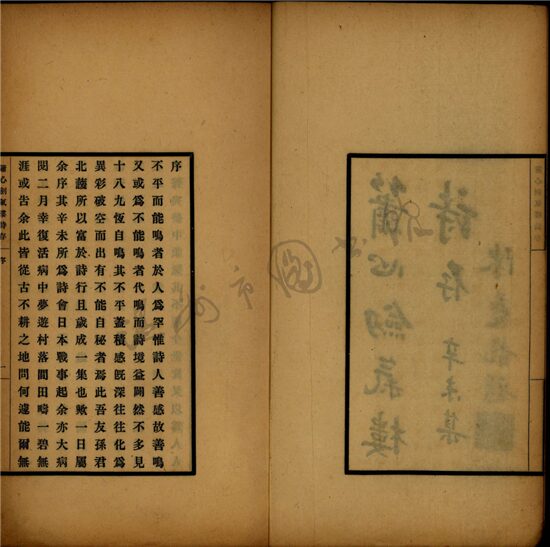 簫心劍氣樓
詩存 辛未集
序
不平而能鳴者於人爲罕惟詩人善感故善鳴
又或爲不能鳴者代鳴而詩境益闢然不多見
十八九恆自鳴其不平蓋積感旣深往往化爲
異彩破空而出有不能自秘者焉此吾友孫君
北蘐所以富於詩行且歲成一集也歟一日屬
余序其辛未所爲詩會日本戰事起余亦大病
閱二月幸復活病中夢遊村落間田疇一碧無
涯或告余此皆從古不耕之地問何遽能爾無
簫心劍氣樓詩存 序 一